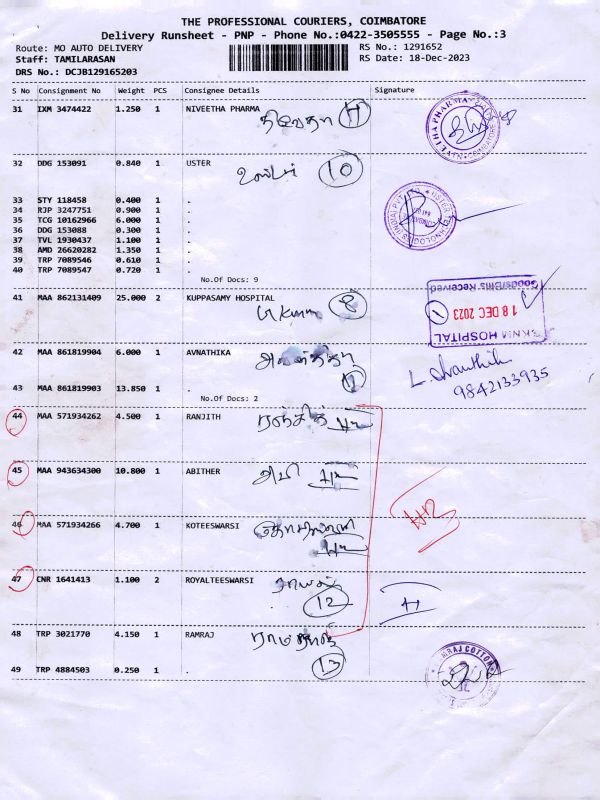 THE PROFESSIONAL COURIERS, COIMBATORE
Delivery Runsheet - PNP - Phone No.:0422-3505555 - Page No.:3
Route: MO AUTO DELIVERY RS No.: 1291652
Staff: TAMILARASAN RS Date: 18-Dec-2023
DRS No.: DCJB129165203
S No Consignment No Weight PCS Consignee Details Signature
31 IXM 3474422 1.250 1 NIVEETHA PHARMA
நிவேதா 11
32 DDG 153091 0.840 1 USTER
உஸ்டர் 10
33 STY 118458 0.400 1 .
34 RJP 3247751 0.900 1 .
35 TCG 10162966 6.000 1 .
36 DDG 153088 0.300 1 .
37 TVL 1930437 1.100 1 .
38 AMD 26620282 1.350 1 .
39 TRP 7089546 0.610 1 .
40 TRP 7089547 0.720 1 .
No.Of Docs: 9
Goods/Bills Received
18 DEC 2023
HOSPITAL
41 MAA 862131409 25.000 2 KUPPASAMY HOSPITAL
8
42 MAA 861819904 6.000 1 AVNATHIKA
அவன்திகா
9842133935
43 MAA 861819903 13.850 1 .
No.Of Docs: 2
44 MAA 571934262 4.500 1 RANJITH
ரஞ்சித்
45 MAA 943634300 10.800 1 ABITHER
அபி
46 MAA 571934266 4.700 1 KOTEESWARSI
47 CNR 1641413 1.100 2 ROYALTEESWARSI
ராயல்
12
48 TRP 3021770 4.150 1 RAMRAJ
ராமராஜ்
13
49 TRP 4884503 0.250 1 .
RAMRAJ COTTON